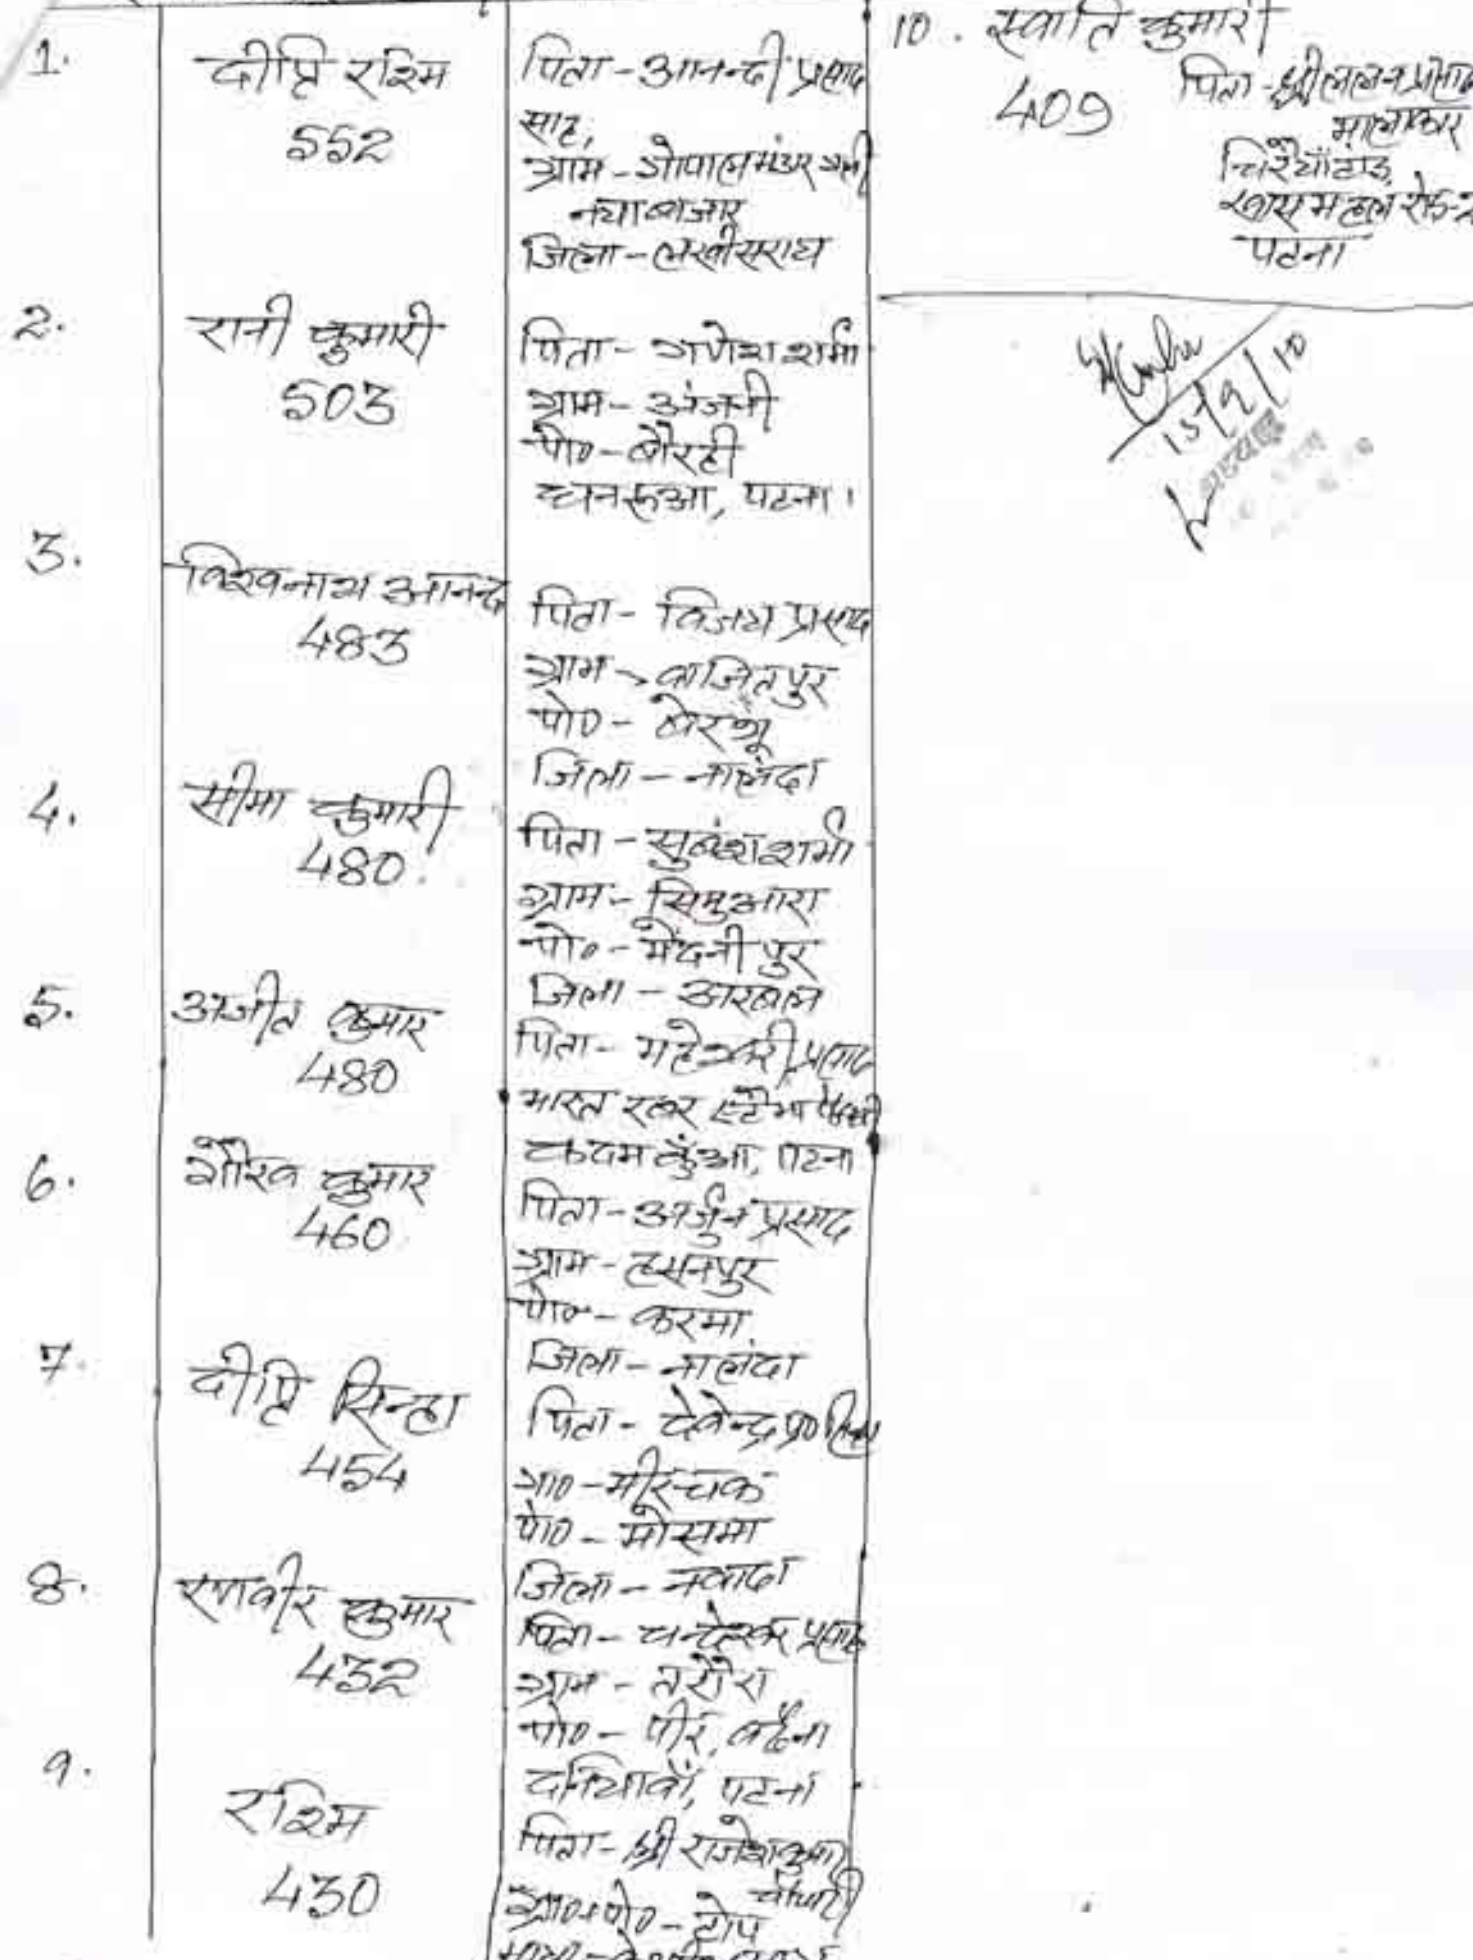 1.
दीप्ति रश्मि
552
पिता - आनन्दी प्रसाद
साह,
ग्राम - गोपाल भंडार गली
नया बाजार
जिला - लखीसराय
2.
रानी कुमारी
503
पिता - गणेश शर्मा
ग्राम - अंजनी
पो० - बौरही
धनरूआ, पटना।
3.
विश्वनाथ आनन्द
483
पिता - विजय प्रसाद
ग्राम - वाजितपुर
पो० - बेरथू
जिला - नालंदा
4.
सीमा कुमारी
480.
पिता - सुवंश शर्मा
ग्राम - सिमुआरा
पो० - मेदनीपुर
जिला - अरवल
5.
अजीत कुमार
480
पिता - महेश्वरी प्रसाद
भारत रबर स्टैम्प
कदमकुँआ, पटना
6.
गौरव कुमार
460
पिता - अर्जुन प्रसाद
ग्राम - हसनपुर
पो० - करमा
जिला - नालंदा
7.
दीप्ति सिन्हा
454
पिता - देवेन्द्र प्र० सिन्हा
ग्रा० - मीरचक
पो० - मोसमा
जिला - नवादा
8.
रणवीर कुमार
432
पिता - चन्देश्वर प्रसाद
ग्राम - तरौरा
पो० - पीर, बढ़ैना
दनियावाँ, पटना
9.
रश्मि
430
पिता - श्री राजेश कुमार
चौधरी
ग्रा०+पो० - टोप
10. स्वाति कुमारी
409
पिता - श्री ललन प्रसाद
मालाकार
चिरैयाँटांड़
खासमहल रोड-2
पटना
15/9/10